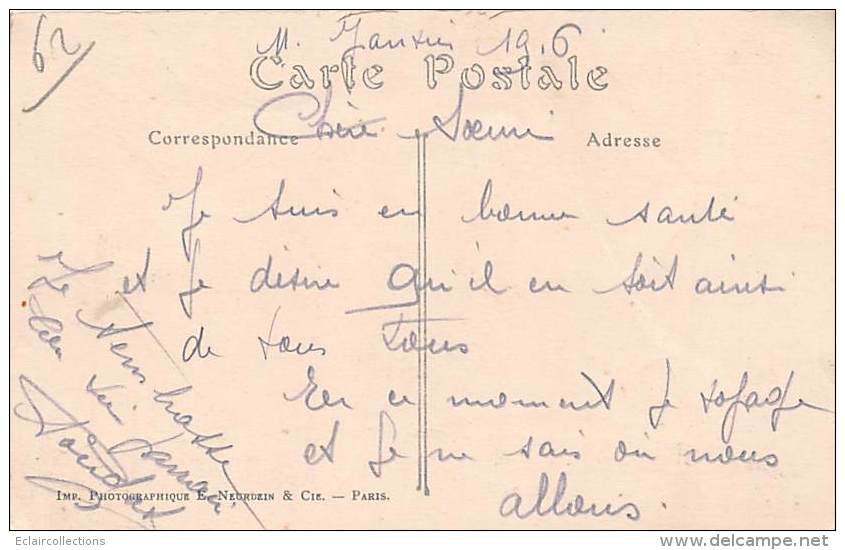 62
11. Janvier 1916
Carte Postale
Chère Soeur
Correspondance
Adresse
Je suis en bonne santé
et je désire qu'il en soit ainsi
de vous tous
En ce moment je voyage
et je ne sais où nous
allons.
Je
IMP. PHOTOGRAPHIQUE E. NEURDEIN & CIE. — PARIS.
Eclaircollections
www.delcampe.net